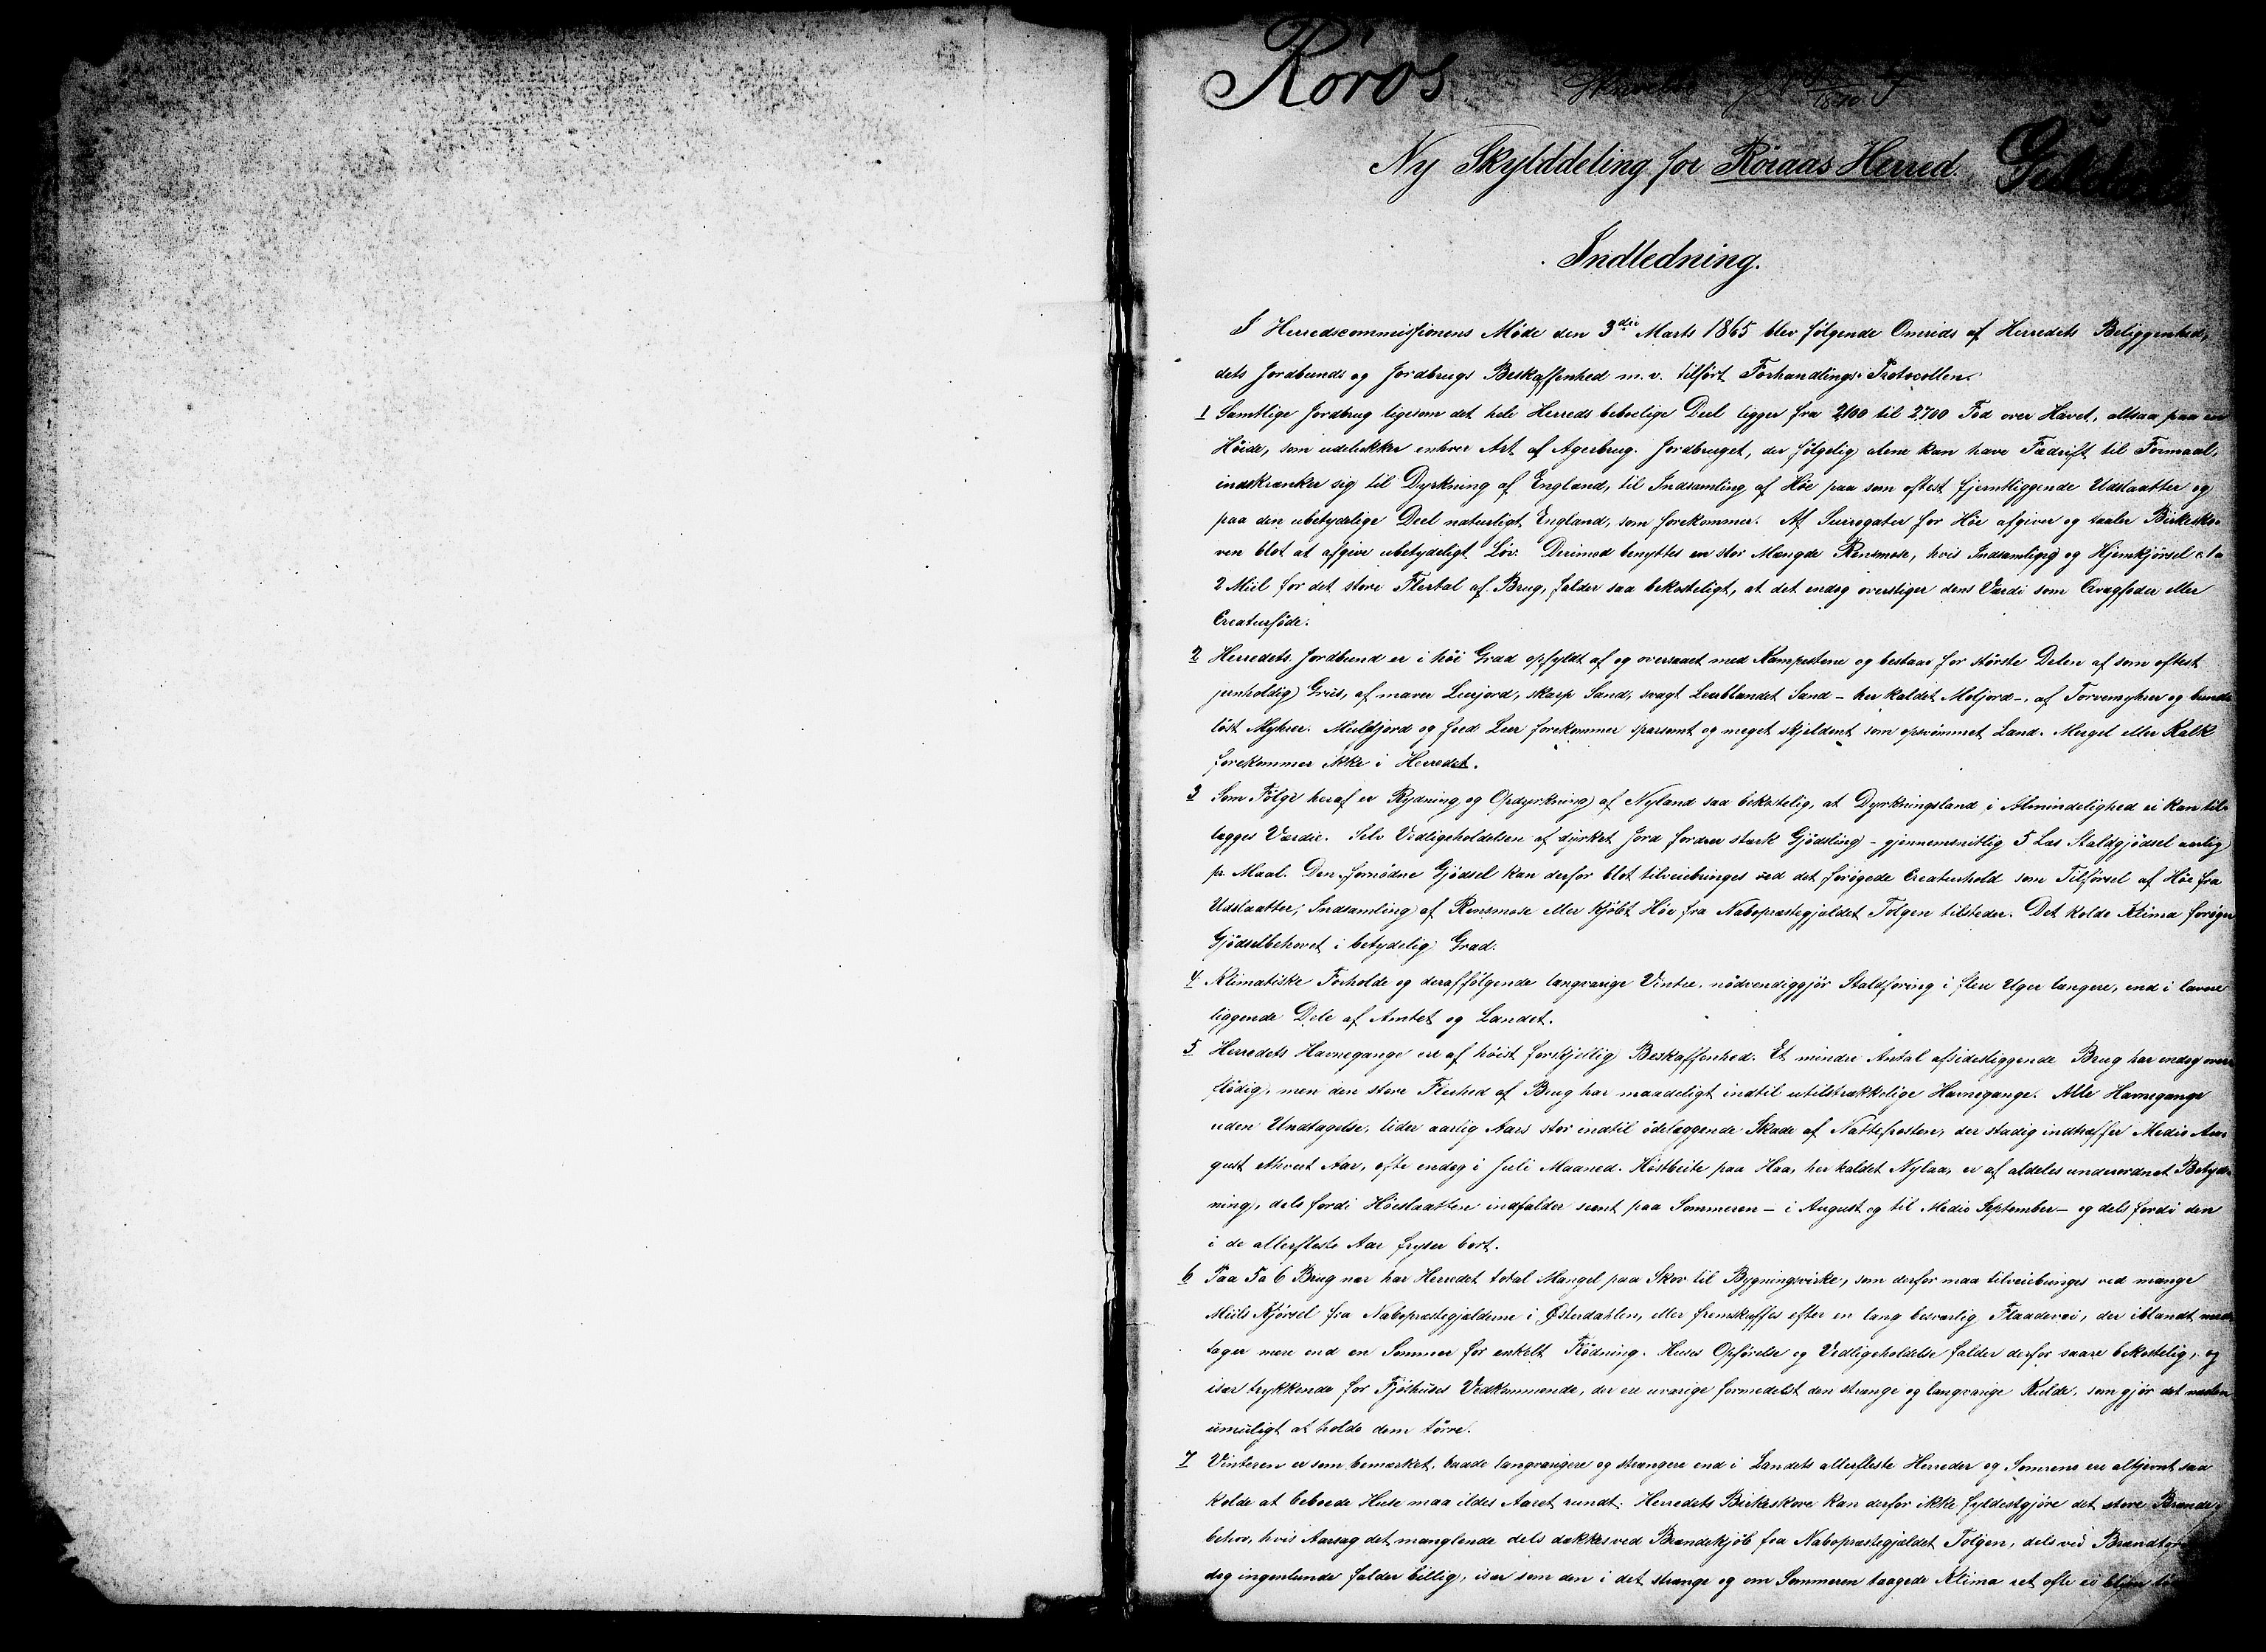 Röros
Ny Skylddeling for Röraas Herred.
Guldal
Indledning.
I Herredscommissionens Möde den 3die Marts 1865 blev følgende Omrids af Herredets Beliggenhed,
dets Jordbunds og Jordbrugs Beskaffenhed m.v. tilført Forhandlings-Protocollen.
1 Samtlige Jordbrug ligesom det hele Herreds beboelige Deel ligger fra 2100 til 2700 Fod over Havet, altsaa paa en
Höide, som udelukker enhver Art af Agerbrug. Jordbruget, der følgelig alene kan have Fædrift til Formaal,
indskrænker sig til Dyrkning af England, til Indsamling af Höe paa som oftest fjerntliggende Udslaatter og
paa den ubetydelige Deel naturligt England, som forekommer. Af Surrogater for Höe afgiver og taaler Birkesko-
ven blot at afgive ubetydeligt Löv. Derimod benyttes en stor Mængde Rensmose, hvis Indsamling og Hjemkjörsel c. 1 a
2 Miil for det store Flertal af Brug, falder saa bekosteligt, at det endog overstiger dens Værdi som Qvægfoder eller
Creaturföde.
2 Herredets Jordbund er i höi Grad opfyldt af og oversaaet med Kampestene og bestaar for største Delen af som oftest
jernholdig Gruus, af maver Leerjord, skarp Sand, svagt Leerblandet Sand - her kaldet Mofjord -, af Torvemyhrer og bund-
löst Myhrer. Muldjord og feed Leer forekommer sparsomt og meget skjeldent som opsvömmet Land. Mergel eller Kalk
forekommer ikke i Herredet.
3 Som Følge heraf er Rydning og Opdyrkning af Nyland saa bekostelig, at Dyrkningsland i Almindelighed ei kan til-
lægges Værdie. Selv Vedligeholdelsen af dyrket Jord fordrer stærk Gjödsling - gjennemsnitlig 5 Læs Staldgjödsel aarlig
pr. Maal. Den fornödne Gjödsel kan derfor blot tilveiebringes ved det forögede Creaturhold som Tilförsel af Höe fra
Udslaatter, Indsamling af Rensmose eller kjöbt Höe fra Nabopræstegjældet Tolgen tilsteder. Det kolde Klima foröger
Gjödselbehovet i betydelig Grad.
4 Klimatiske Forholde og deraf følgende langvarige Vintre, nödvendiggjör Staldforing i flere Uger længere, end i lavere
liggende Dele af Amtet og Landet.
5 Herredets Havnegange ere af höist forskjellig Beskaffenhed. Et mindre Antal afsidesliggende Brug har endog over-
flödig, men den store Fleerhed af Brug har maadeligt indtil utilstrækkelige Havnegange. Alle Havnegange
uden Undtagelse, lider aarlig Aars stor indtil ödelæggende Skade af Nattefrosten, der stadig indtræffer Medio Au-
gust ethvert Aar, ofte endog i Juli Maaned. Höstbeite paa Haa, her kaldet Nylaa, er af aldeles underordnet Betyd-
ning, dels fordi Höeslaatten indfalder seent paa Sommeren - i August og til Medio September - og dels fordi den
i de allerfleste Aar fryser bort.
6 Paa 5 a 6 Brug nær har Herredet total Mangel paa Skov til Bygningsvirke, som derfor maa tilveiebringes ved mange
Miils Kjörsel fra Nabopræstegjældene i Østerdahlen, eller fremskaffes efter en lang besværlig Flaadevei, der iblandt med-
tager mere end en Sommer for enkelt Flödning. Huses Opförelse og Vedligeholdelse falder derfor saare bekostelig, og
især trykkende for Fjöshuses Vedkommende, der ere uvarige formedelst den strænge og langvarige Kulde, som gjör det næsten
umuligt at holde dem törre.
7 Vinteren er som bemærket, baade langvarigere og strængere end i Landets allerfleste Herreder og Somrene ere altjevnt saa
kolde at beboede Huse maa ildes Aaret rundt. Herredets Birkeskove kan derfor ikke fyldestgjöre det store Brænde-
behov, hvis Aarsag det manglende dels dækkes ved Brændekjöb fra Nabopræstegjældet Tolgen, dels ved Brændtorv
dog ingenlunde falder billig, især som den i det strænge og om Sommeren taagede Klima ret ofte ei bliver